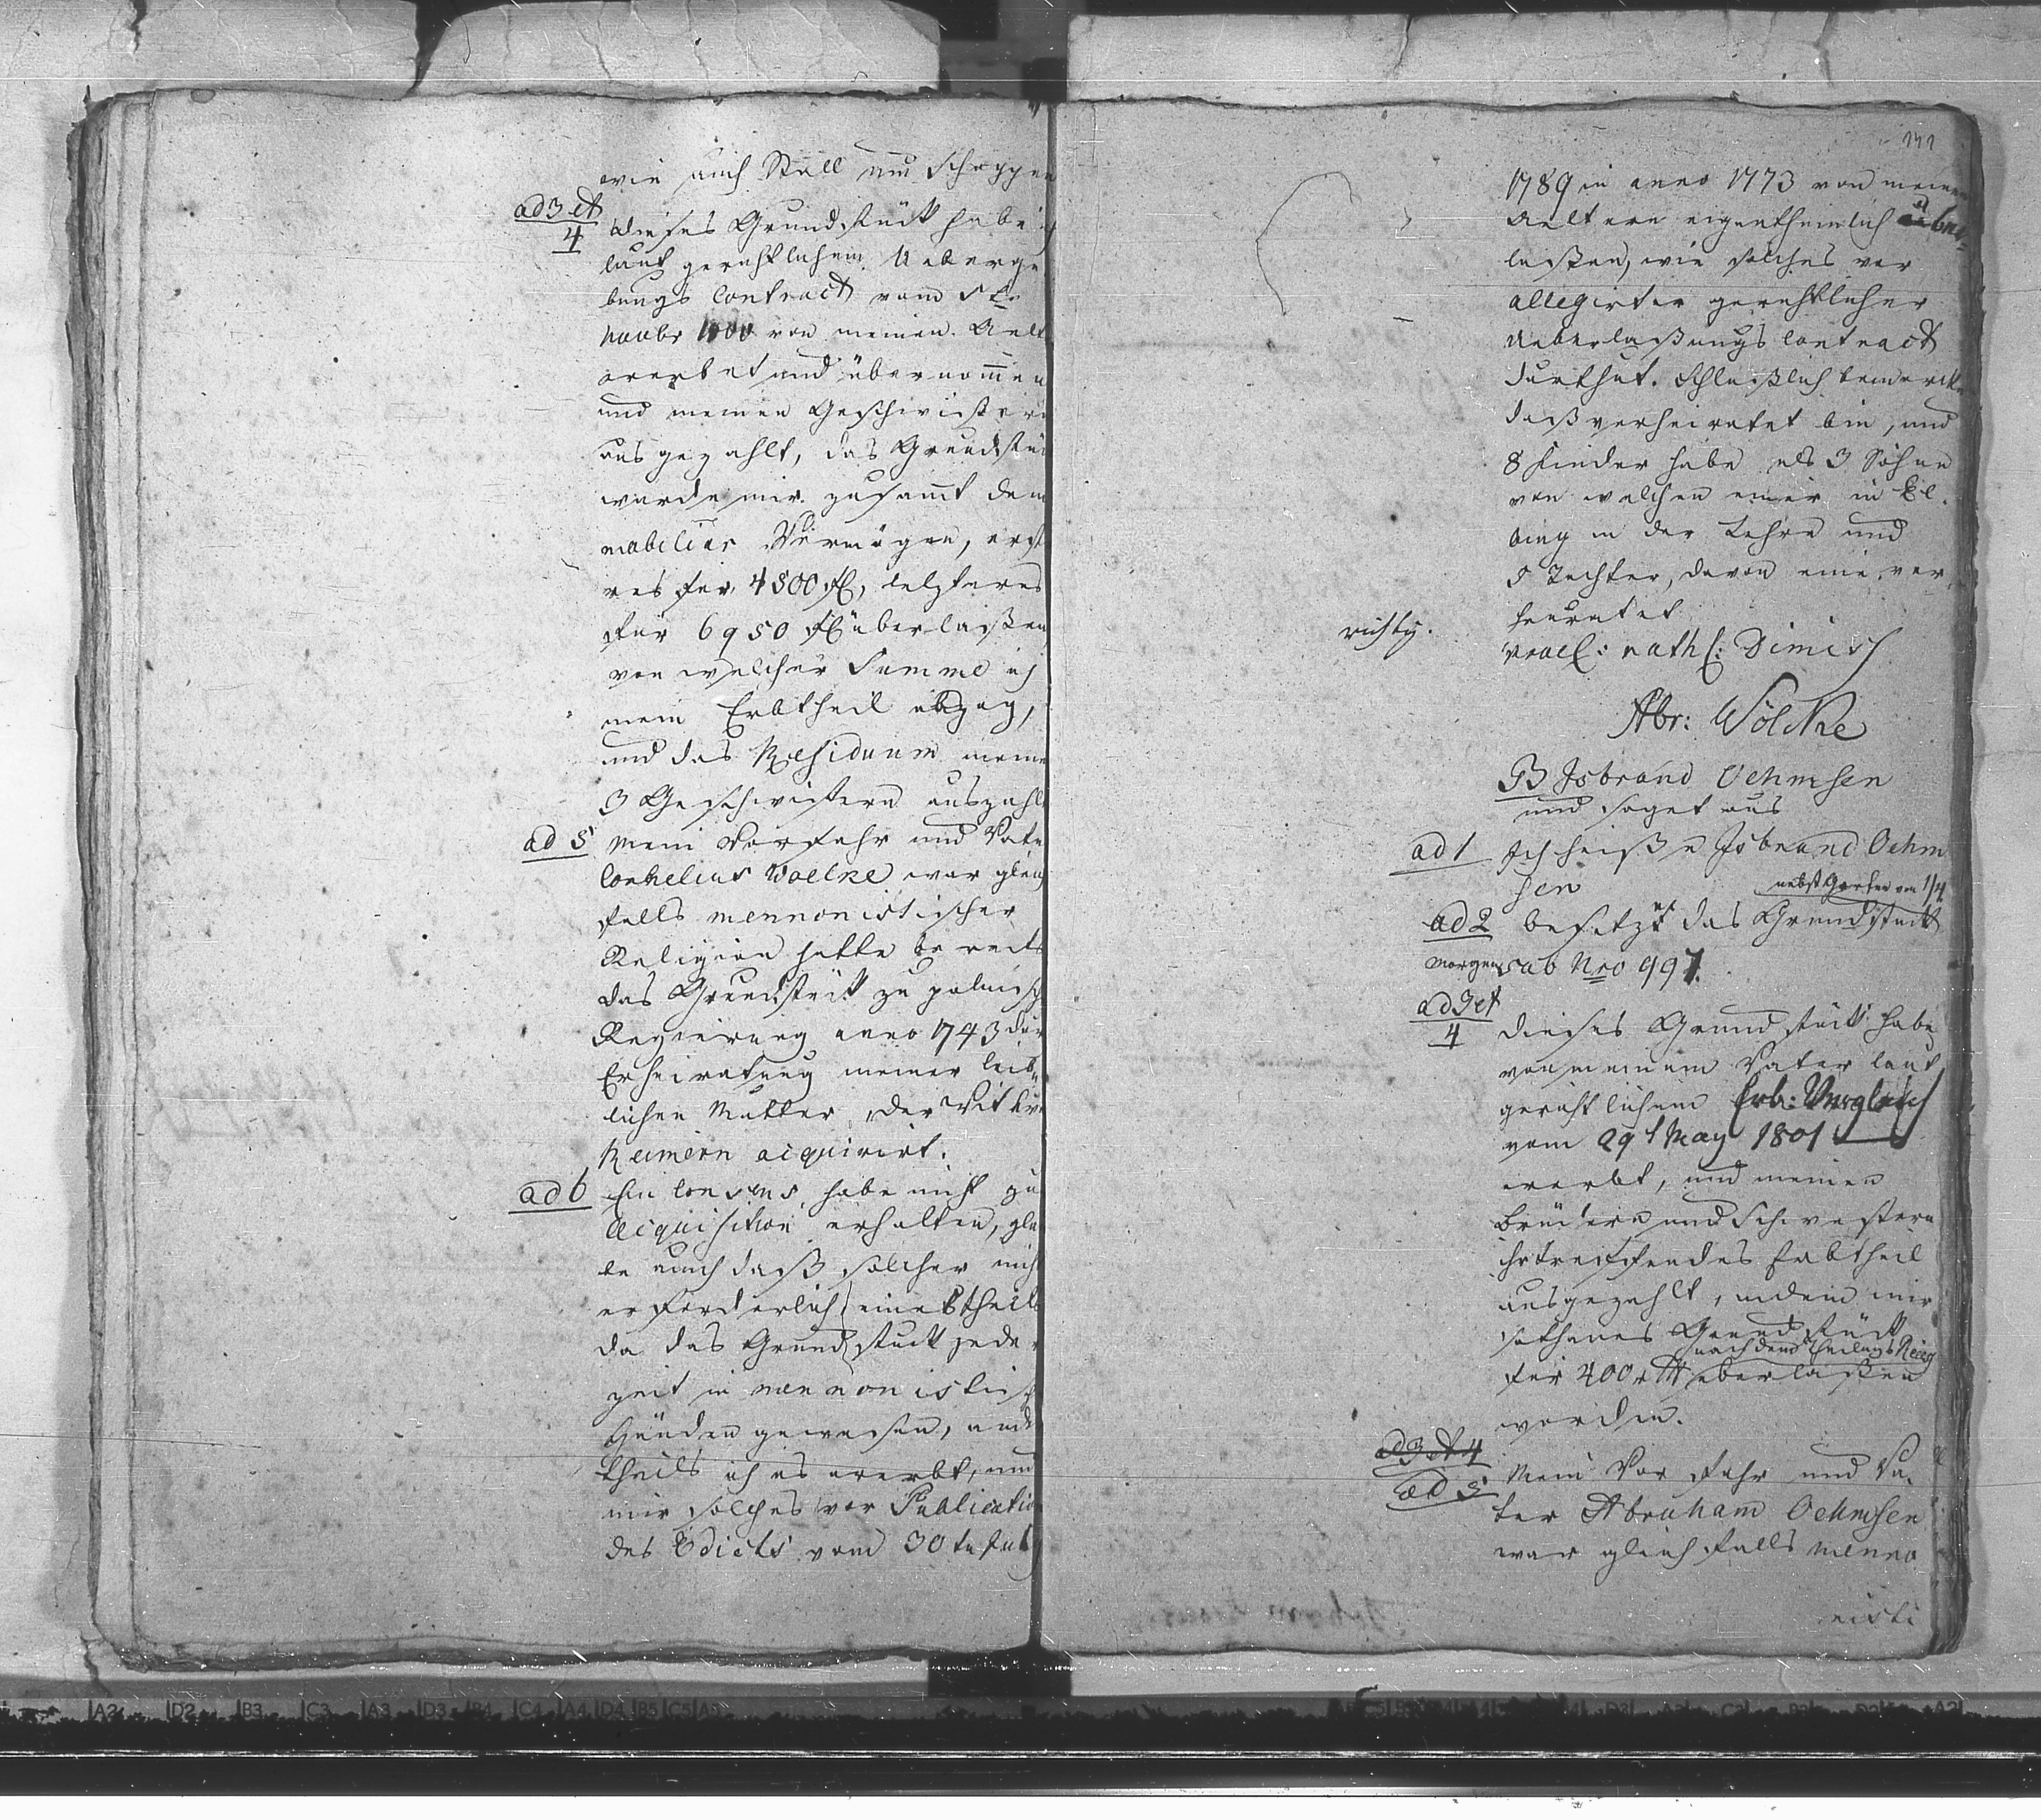 wie auch Stall und Schoppen
ad 3 et 4
dieses Grundstück habe ich
laut gerichtlichem Ueberge
bungs Contract vom
Novbr von meinen Aelt
ererbet und übernom̄en
und meinen Geschwistern
ausgezahlt, das Grundstück
wurde mir zusamt dem
mobiliar Vermögen, erst
res für 4500 fl, letzteres
für 6950 fl überlaßen
von welcher Summe ich
mein Erbtheil abzog,
und das Residuum meine
3 Geschwistern auszahlt
ad 5 Mein Vorfahr und Vate
Cornelius Woelke war gleich
falls mennonistischer
Religion hatte bereits
das Grundstück zu polnisch
Regierung anno 1743 dur
Erheiratung meiner leib
lichen Mutter, der Witwe
Reimern acquirirt.
ad 6 Ein Consens habe nicht zu
Acquisition erhalten, gla
be auch daß solcher nicht
erforderlich, einestheils
da das Grundstück jeder
zeit in mennonistisch
Händen gewesen, ande
theils ich es ererbt, und
mir solches vor Publicatio
des Edicts vom 30 t July
141
1789 in anno 1773 von meinen
Aeltern eigenthümlich über
laßen, wie solches vor
allegirter gerichtlicher
Ueberlaßungs Contract
darthut. Schlüßlich bemercke
daß verheiratet bin, und
8 Kinder habe als 3 Söhne
von welchen einer in El
bing in der Lehre und
5 Tochter, davon eine ver
heuratet
richtig.
prael: rath: dimiss
Abr: Wölcke
B Isbrand Oehmsen
und saget aus
ad 1 Ich heiße Isbrand Oehm
sen
nebst Garten von 1/4
ad 2 besitze das Grundstück
Morgen sub Nro 997.
ad 3 et 4
dieses Grundstück habe
von meinem Vater laut
gerichtlichem Erb: Vergleich
vom 29 t May 1801
ererbt, und meinen
Brüdern und Schwestern
ihr treffendes Erbtheil
ausgezahlt, indem mir
sothanes Grundstück
nach dem Theilungs Receß
für 400 rth überlaßen
worden.
ad 3 et 4
ad 5 Mein Vorfahr und Va
ter Abraham Oehmsen
war gleichfalls menno
nisti